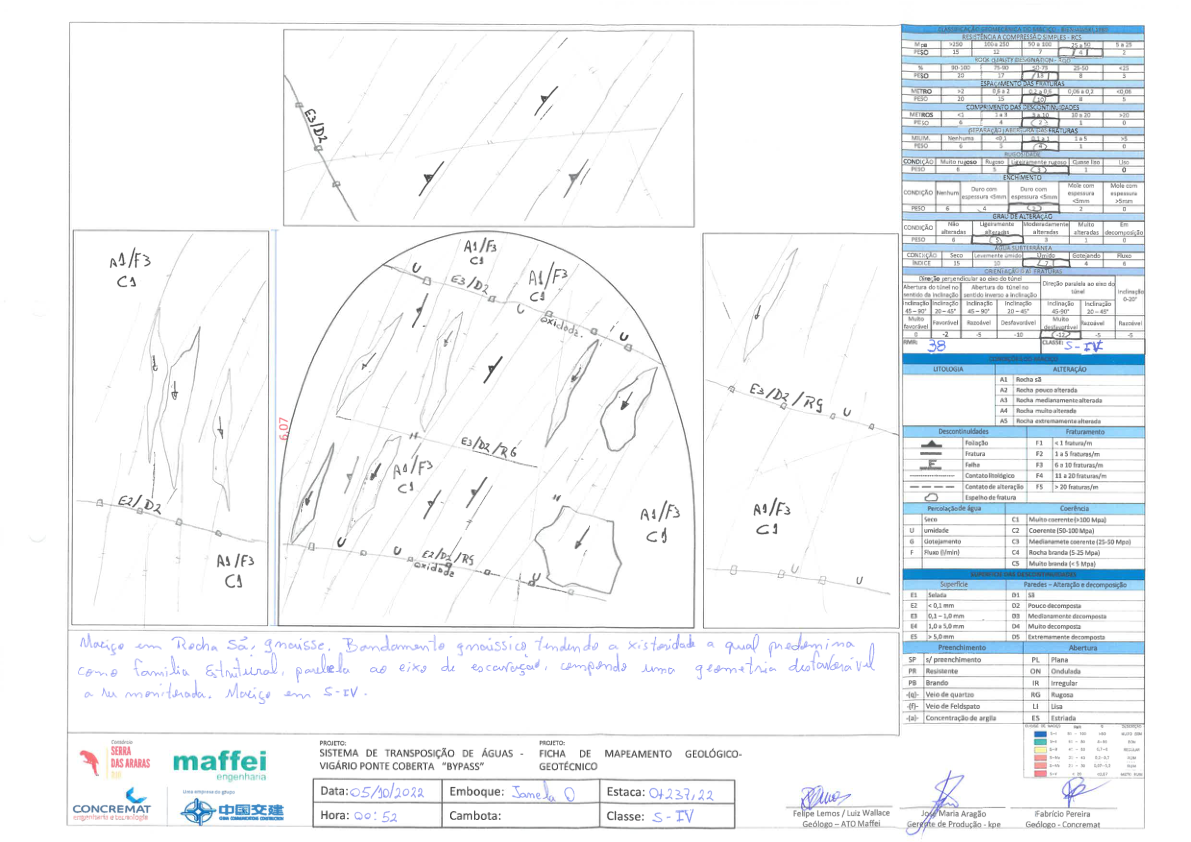 E3/D2
A1/F3
C1
E2/D2
A1/F3
C1
6,07
A1/F3
C1
U
E3/D2
A1/F3
C1
oxidadz.
U
U
E3/D2/RG
A1/F3
C1
U
U
E2/D2/RG
oxidadz
A1/F3
C1
E3/D2/RG
U
A1/F3
C1
U
U
Maciço em Rocha Sã, gnaisse. Bandamento gnaissico tendendo a xistosidade a qual predomina
como família Estrutural, paralela ao eixo de escavação, compondo uma geometria desfavorável
a ser monitorada. Maciço em S-IV.
RESISTÊNCIA A COMPRESSÃO SIMPLES - RCS
MPa >250 100 a 250 50 a 100 25 a 50 5 a 25
PESO 15 12 7 4 2
ROCK QUALITY DESIGNATION - RQD
% 90-100 75-90 50-75 25-50 <25
PESO 20 17 13 8 3
ESPAÇAMENTO DAS FRATURAS
METRO >2 0,6 a 2 0,2 a 0,6 0,06 a 0,2 <0,06
PESO 20 15 10 8 5
COMPRIMENTO DAS DESCONTINUIDADES
METROS <1 1 a 3 3 a 10 10 a 20 >20
PESO 6 4 2 1 0
(SEPARAÇÃO) ABERTURA DAS FRATURAS
MILIM. Nenhuma <0,1 0,1 a 1 1 a 5 >5
PESO 6 5 4 1 0
RUGOSIDADE
CONDIÇÃO Muito rugoso Rugoso Ligeiramente rugoso Quase liso Liso
PESO 6 5 3 1 0
ENCHIMENTO
CONDIÇÃO Nenhum Duro com espessura <5mm Duro com espessura <5mm Mole com espessura <5mm Mole com espessura >5mm
PESO 6 4 2 2 0
GRAU DE ALTERAÇÃO
CONDIÇÃO Não alteradas Ligeiramente alteradas Moderadamente alteradas Muito alteradas Em decomposição
PESO 6 5 3 1 0
ÁGUA SUBTERRÂNEA
CONDIÇÃO Seco Levemente úmido Úmido Gotejando Fluxo
ÍNDICE 15 10 7 4
ORIENTAÇÃO DAS FRATURAS
Direção perpendicular ao eixo do túnel
Direção paralela ao eixo do túnel
Inclinação 0-20°
Abertura do túnel no sentido da inclinação
Abertura do túnel no sentido inverso a inclinação
Inclinação 45 – 90° Inclinação 20 – 45° Inclinação 45 – 90° Inclinação 20 – 45° Inclinação 45-90° Inclinação 20 – 45°
Muito favorável Favorável Razoável Desfavorável Muito desfavorável Razoável Razoável
0 -2 -5 -10 -12 -5 -5
RMR: 38 CLASSE: S-IV
CONDIÇÕES DO MACIÇO
LITOLOGIA ALTERAÇÃO
A1 Rocha sã
A2 Rocha pouco alterada
A3 Rocha medianamente alterada
A4 Rocha muito alterada
A5 Rocha extremamente alterada
Descontinuidades Fraturamento
Foliação F1 < 1 fratura/m
Fratura F2 1 a 5 fraturas/m
F Falha F3 6 a 10 fraturas/m
Contato litológico F4 11 a 20 fraturas/m
Contato de alteração F5 > 20 fraturas/m
Espelho de fratura
Percolação de água Coerência
Seco C1 Muito coerente (>100 Mpa)
U umidade C2 Coerente (50-100 Mpa)
G Gotejamento C3 Medianamete coerente (25-50 Mpa)
F Fluxo (l/min) C4 Rocha branda (5-25 Mpa)
C5 Muito branda (< 5 Mpa)
SUPERFÍCIE DAS DESCONTINUIDADES
Superfície Paredes – Alteração e decomposição
E1 Selada D1 Sã
E2 < 0,1 mm D2 Pouco decomposta
E3 0,1 – 1,0 mm D3 Medianamente decomposta
E4 1,0 a 5,0 mm D4 Muito decomposta
E5 > 5,0 mm D5 Extremamente decomposta
Preenchimento Abertura
SP s/ preenchimento PL Plana
PR Resistente ON Ondulada
PB Brando IR Irregular
-(q)- Veio de quartzo RG Rugosa
-(f)- Veio de Feldspato LI Lisa
-(a)- Concentração de argila ES Estriada
Consórcio
SERRA
DAS ARARAS
maffei
engenharia
CONCREMAT
engenharia e tecnologia
Uma empresa do grupo
中国交建
CHINA COMMUNICATIONS CONSTRUCTION
PROJETO:
SISTEMA DE TRANSPOSIÇÃO DE ÁGUAS -
VIGÁRIO PONTE COBERTA “BYPASS”
PROJETO:
FICHA DE MAPEAMENTO GEOLÓGICO-
GEOTÉCNICO
Data: 05/10/2022 Emboque: Janela O Estaca: 0+237,22
Hora: 00:52 Cambota: Classe: S-IV
Felipe Lemos / Luiz Wallace
Geólogo – ATO Maffei
José Maria Aragão
Gerente de Produção - kpe
Fabrício Pereira
Geólogo - Concremat